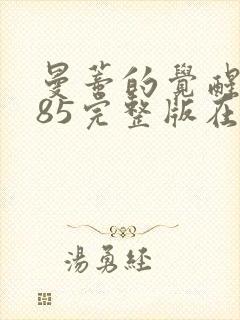 曼蒂的覺醒
85完整版在
湯勇經